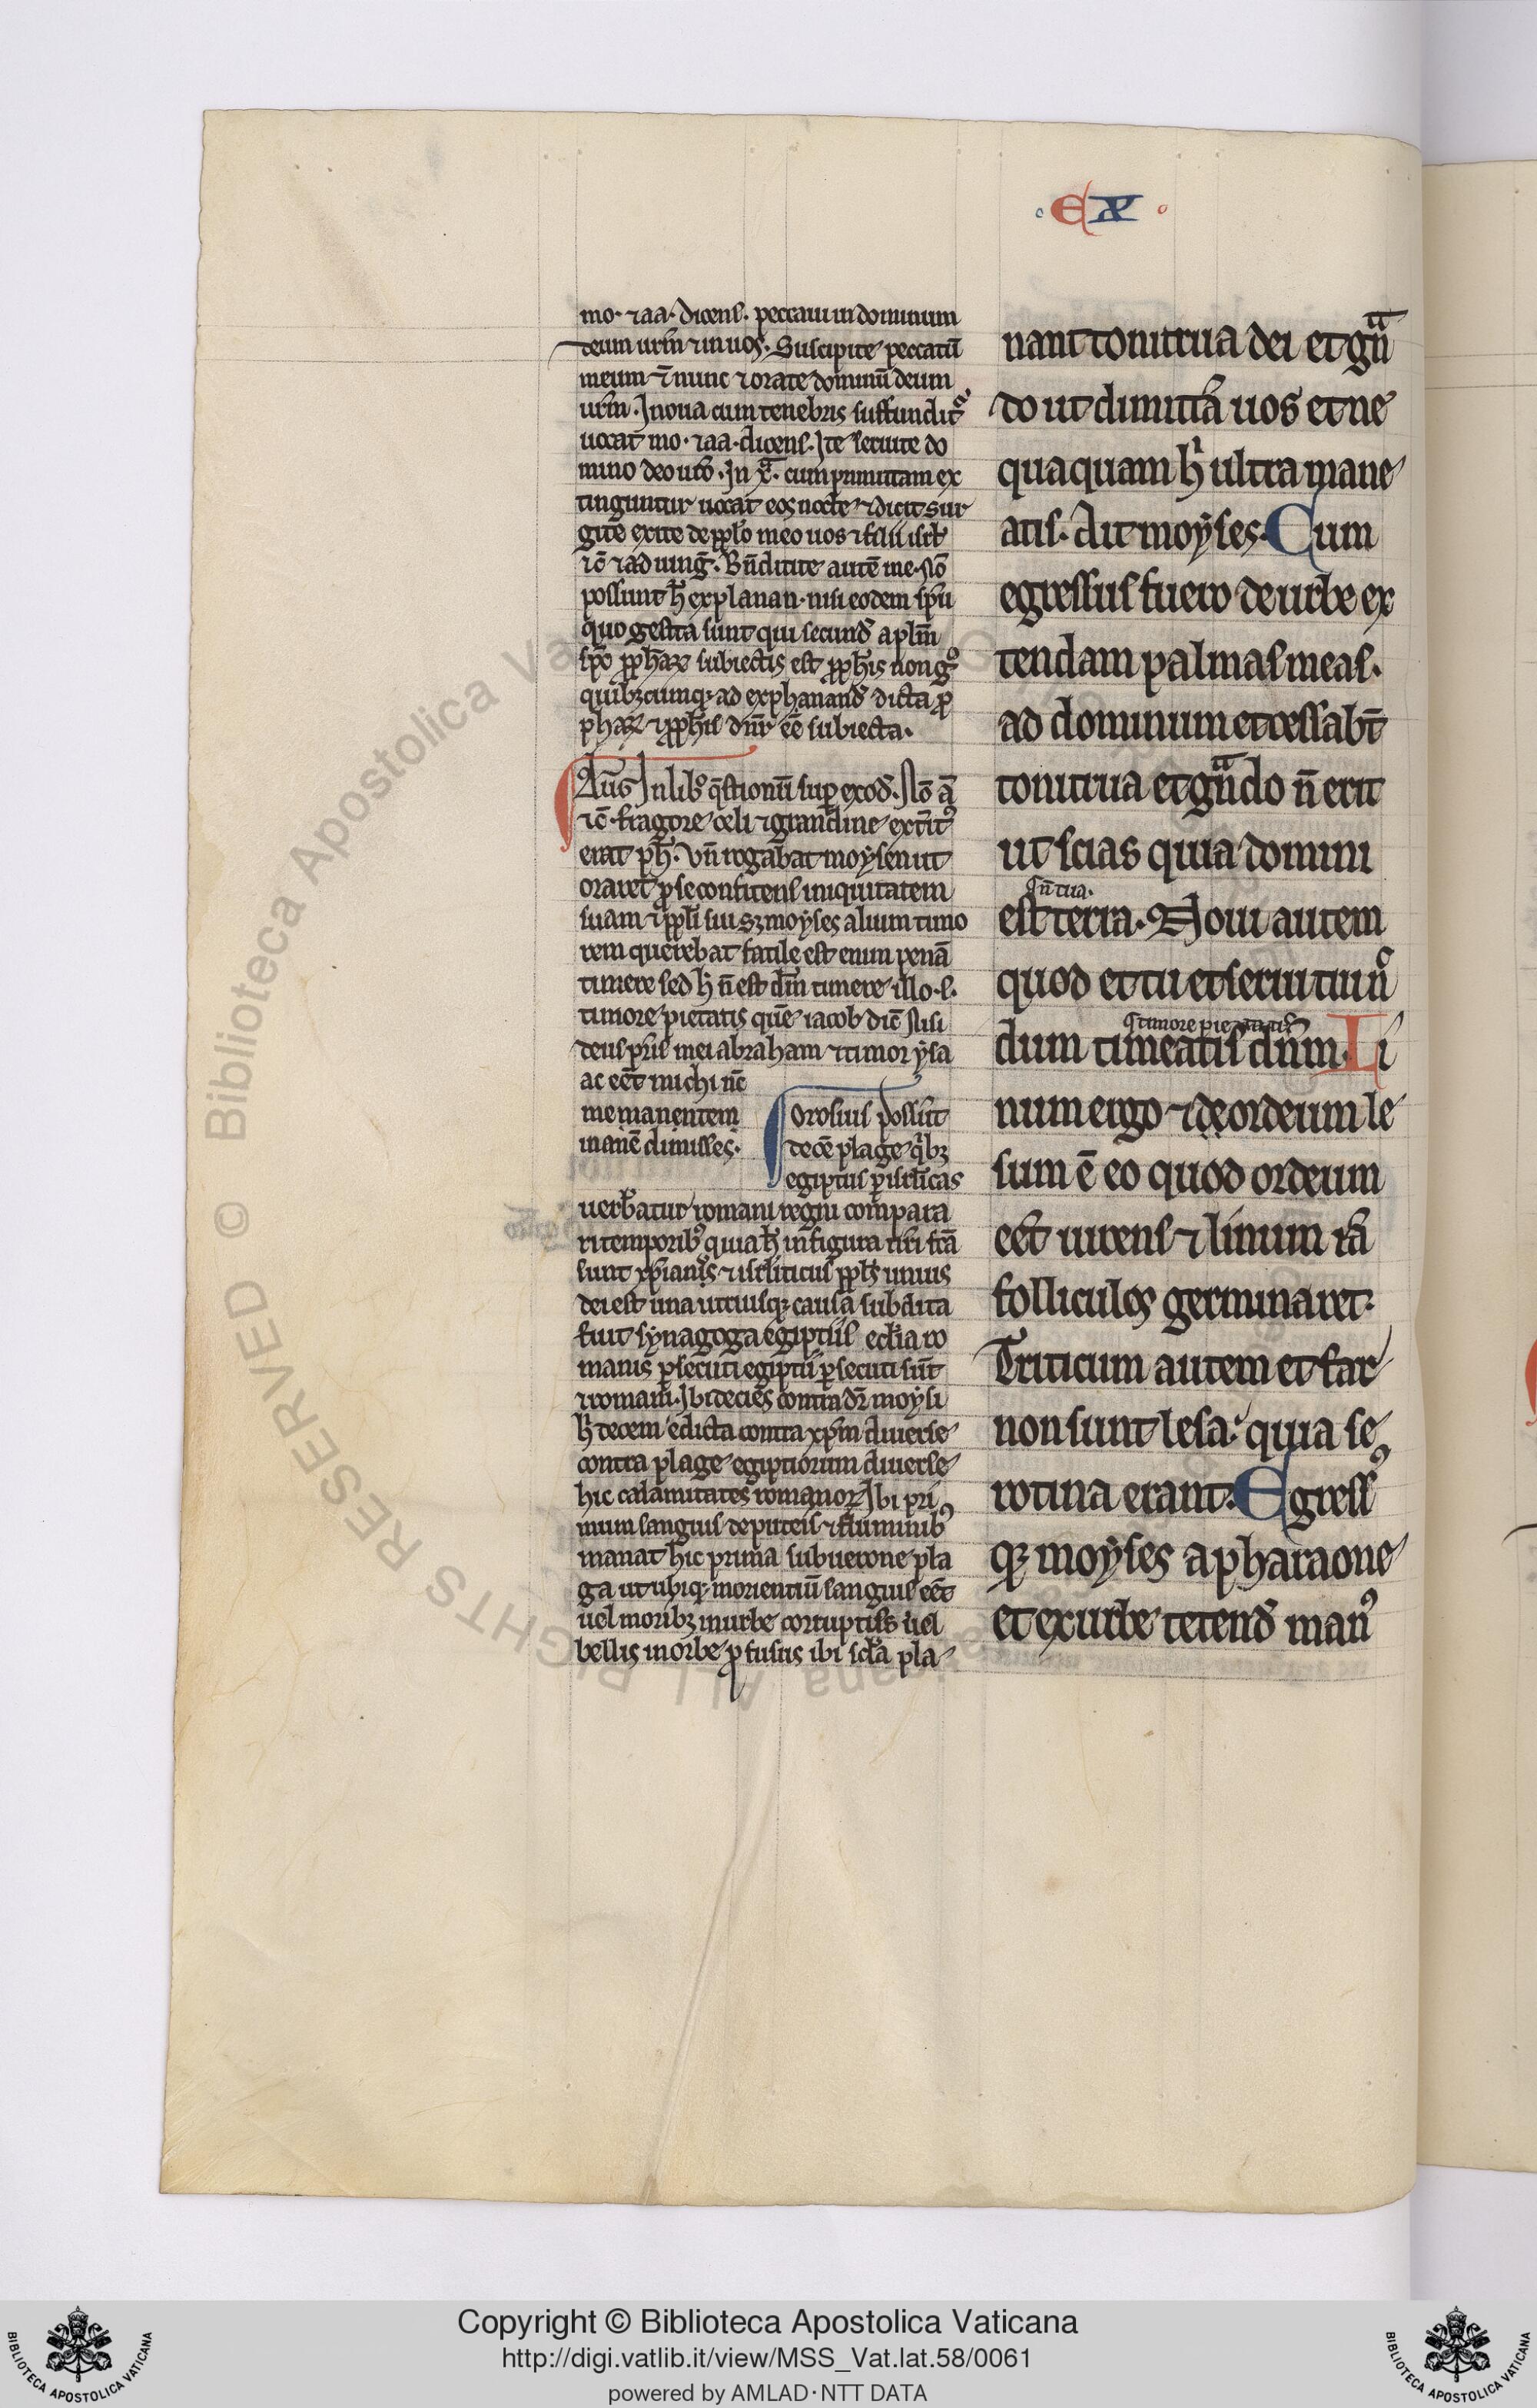 EX
mo· ⁊aa· dicens· peccaui in dominum
deum urm̄ ⁊ in uos· Suscipite peccatū
meum ⁊̄ nunc ⁊orate dominū deum
urm̄· In nona cum tenebris suffundit᷑
uocat mo· ⁊aa· dicens· Ite seruite do
mino deo uro· In x̄a· cum primitiua ex
tinguntur uocat eos nocte ⁊ dicit sur
gite exite de pplo meo uos ⁊ filii isrl'
⁊c̄ ⁊ ad iung̅· Bn̄dicite autē me· Nō
possunt h̄ explanari· nisi eodem spū
quo gesta sunt qui secund̄ aplm̄
spō ꝓphaꝝ subiectis est ꝓphis non gͦ
quibꝫcumqꝫ ad explanand̄ dicta ꝓ
phaꝝ ⁊ ꝓphis dnr̄ eē subiecta·
Aug̅ In lib' q̄stionū suꝑ exod̄· Nō ā
⁊c̄· fragore celi ⁊ grandine extr̄it᷒
erat ph̄· Vn̄ rogabat moysen ut
oraret ꝓ se confitens iniquitatem
suam ⁊ ppli sui sꝫ moyses alium timo
rem querebat facile est enim penā
timere sed h̄ n̄ est dm̄ timere illo· s·
timore pietatis quē iacob dic̄ Nisi
deus pr̄is mei abraham ⁊ timor ysa
ac eēt michi nc̄
me manentem
inanē dimisses·
Orosius possūt
decē plage q̇bꝫ
egiptus ꝑ isrl̄icas
uerbatur romani regni compara
ri temporibꝰ quia h̄ in figura nr̄i fc̄a
sunt xp̄ianꝰ ⁊ isrl̄iticus ppl̄s unius
dei est una utriusqꝫ causa subdita
fuit synagoga egiptiis ecl'ia ro
manis ꝑsecuti egiptii ꝑsecuti sūt
⁊ romani· Ibi decies contradr̄ moysi
h̄ decem edicta contra xp̄m diuerse
contra plage egiptiorum diuerse
hic calamitates romanoꝝ Ibi pri
mum sanguis de puteis ⁊ fluminibꝰ
manat hic prima sub nerone pla
ga ut ubiqꝫ morientiū sanguis eēt
uel moribꝫ in urbe corruptis uel
bellis in orbe ꝓfusus ibi scda pla
nant tonitrua dei et gn̄a
do ut dimittā uos et ne
quaquam h' ultra mane
atis· Ait moyses· Cum
egressus fuero de urbe ex
tendam palmas meas·
ad dominum et cessabt̄
tonitrua et gn̄ado n̄ erit
ut scias quia domini
n̄ tua·
est terra· Noui autem
quod et tu et serui tui n̄
timore pietatis
dum timeatis dn̄m· Li
num ergo ⁊ deordeum le
sum ē eo quod ordeum
eēt uirens ⁊ linum iā
folliculos germinaret·
Triticum autem et far
non sunt lesa· quia se
rotina erant· Egressꝰ
qꝫ moyses a pharaone
et ex urbe tetend̄ manꝰ
Copyright © Biblioteca Apostolica Vaticana
http://digi.vatlib.it/view/MSS_Vat.lat.58/0061
powered by AMLAD·NTT DATA